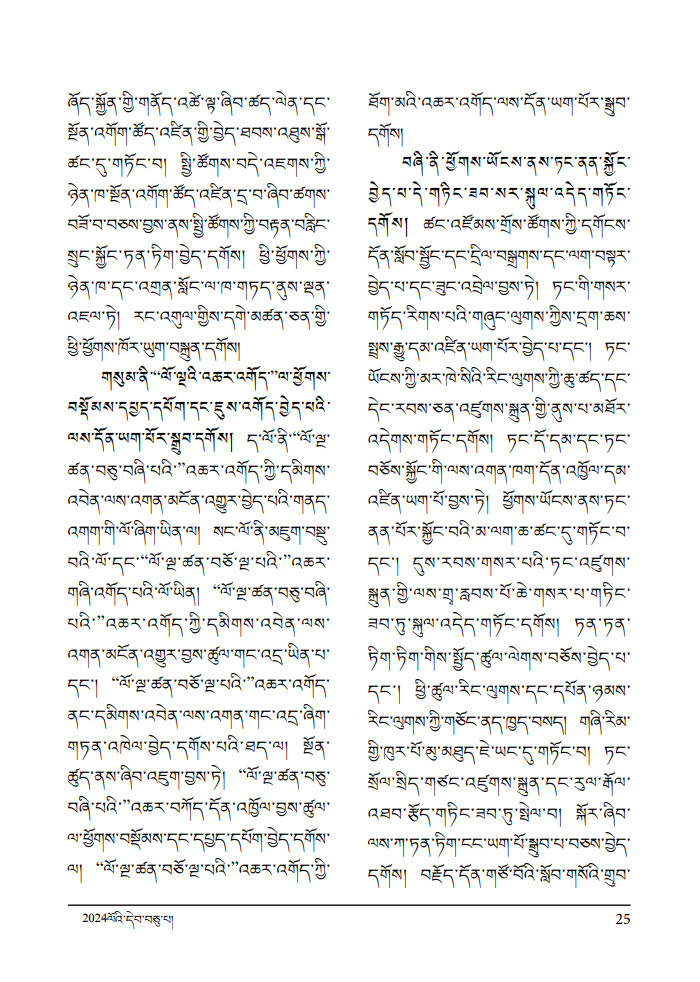 ཞོད་སྐྱོན་གྱི་གནོད་འཚེ་ལྟ་ཞིབ་ཚད་ལེན་དང་
སྔོན་འགོག་ཚོད་འཛིན་གྱི་བྱེད་ཐབས་འཐུས་སྒོ་
ཚང་དུ་གཏོང་བ། སྤྱི་ཚོགས་བདེ་འཇགས་ཀྱི་
ཉེན་ཁ་སྔོན་འགོག་ཚོད་འཛིན་དྲ་བ་ཞིབ་ཚགས་
བཟོ་བ་བཅས་བྱས་ནས་སྤྱི་ཚོགས་ཀྱི་བརྟན་བརླིང་
སྲུང་སྐྱོང་ཏན་ཏིག་བྱེད་དགོས། ཕྱི་ཕྱོགས་ཀྱི་
ཉེན་ཁ་དང་འགྲན་སློང་ལ་ཁ་གཏད་ནུས་ལྡན་
འཇལ་ཏེ། རང་འགུལ་གྱིས་དགེ་མཚན་ཅན་གྱི་
ཕྱི་ཕྱོགས་ཁོར་ཡུག་བསྐྲུན་དགོས།
གསུམ་ནི་“ལོ་ལྔའི་འཆར་འགོད་”ལ་ཕྱོགས་
བསྡོམས་དཔྱད་དཔོག་དང་ཇུས་འགོད་བྱེད་པའི་
ལས་དོན་ཡག་པོར་སྒྲུབ་དགོས། ད་ལོ་ནི་“ལོ་ལྔ་
ཚན་བཅུ་བཞི་པའི་”འཆར་འགོད་ཀྱི་དམིགས་
འབེན་ལས་འགན་མངོན་འགྱུར་བྱེད་པའི་གནད་
འགག་གི་ལོ་ཞིག་ཡིན་ལ། སང་ལོ་ནི་མཇུག་བསྡུ་
བའི་ལོ་དང་“ལོ་ལྔ་ཚན་བཅོ་ལྔ་པའི་”འཆར་
གཞི་འགོད་པའི་ལོ་ཡིན། “ལོ་ལྔ་ཚན་བཅུ་བཞི་
པའི་”འཆར་འགོད་ཀྱི་དམིགས་འབེན་ལས་
འགན་མངོན་འགྱུར་བྱས་ཚུལ་གང་འདྲ་ཡིན་པ་
དང་། “ལོ་ལྔ་ཚན་བཅོ་ལྔ་པའི་”འཆར་འགོད་
ནང་དམིགས་འབེན་ལས་འགན་གང་འདྲ་ཞིག་
གཏན་འཁེལ་བྱེད་དགོས་པའི་ཐད་ལ། སྔོན་
ཚུད་ནས་ཞིབ་འཇུག་བྱས་ཏེ། “ལོ་ལྔ་ཚན་བཅུ་
བཞི་པའི་”འཆར་བཀོད་དོན་འཁྱོལ་བྱས་ཚུལ་
ལ་ཕྱོགས་བསྡོམས་དང་དཔྱད་དཔོག་བྱེད་དགོས་
ལ། “ལོ་ལྔ་ཚན་བཅོ་ལྔ་པའི་”འཆར་འགོད་ཀྱི་
ཐོག་མའི་འཆར་འགོད་ལས་དོན་ཡག་པོར་སྒྲུབ་
དགོས།
བཞི་ནི་ཕྱོགས་ཡོངས་ནས་ཏང་ནན་སྐྱོང་
བྱེད་པ་དེ་གཏིང་ཟབ་སར་སྐུལ་འདེད་གཏོང་
དགོས། ཚང་འཛོམས་གྲོས་ཚོགས་ཀྱི་དགོངས་
དོན་སློབ་སྦྱོང་དང་དྲིལ་བསྒྲགས་དང་ལག་བསྟར་
བྱེད་པ་དང་ཟུང་འབྲེལ་བྱས་ཏེ། ཏང་གི་གསར་
གཏོད་རིགས་པའི་གཞུང་ལུགས་ཀྱིས་དྲག་ཆས་
སྤྲས་རྒྱུ་དམ་འཛིན་ཡག་པོར་བྱེད་པ་དང་། ཏང་
ཡོངས་ཀྱི་མར་ཁེ་སིའི་རིང་ལུགས་ཀྱི་ཆུ་ཚད་དང་
དེང་རབས་ཅན་འཛུགས་སྐྲུན་གྱི་ནུས་པ་མཐོར་
འདེགས་གཏོང་དགོས། ཏང་དོ་དམ་དང་ཏང་
བཅོས་སྐྱོང་གི་ལས་འགན་ཁག་དོན་འཁྱོལ་དམ་
འཛིན་ཡག་པོ་བྱས་ཏེ། ཕྱོགས་ཡོངས་ནས་ཏང་
ནན་པོར་སྐྱོང་བའི་མ་ལག་ཆ་ཚང་དུ་གཏོང་བ་
དང་། དུས་རབས་གསར་པའི་ཏང་འཛུགས་
སྐྲུན་གྱི་ལས་གྲྭ་རླབས་པོ་ཆེ་གསར་པ་གཏིང་
ཟབ་ཏུ་སྐུལ་འདེད་གཏོང་དགོས། ཏན་ཏན་
ཏིག་ཏིག་གིས་སྤྱོད་ཚུལ་ལེགས་བཅོས་བྱེད་པ་
དང་། ཕྱི་ཚུལ་རིང་ལུགས་དང་དཔོན་ཉམས་
རིང་ལུགས་ཀྱི་གཅོང་ནད་ཁྱད་བསད། གཞི་རིམ་
གྱི་ཁུར་པོ་མུ་མཐུད་ཇེ་ཡང་དུ་གཏོང་བ། ཏང་
སྲོལ་སྲིད་གཙང་འཛུགས་སྐྲུན་དང་རུལ་རྒོལ་
འཐབ་རྩོད་གཏིང་ཟབ་ཏུ་སྤེལ་བ། སྐོར་ཞིབ་
ལས་ཀ་ཏན་ཏིག་ངང་ཡག་པོ་སྒྲུབ་པ་བཅས་བྱེད་
དགོས། བརྗོད་དོན་གཙོ་བོའི་སློབ་གསོའི་གྲུབ་
2024ལོའི་དེབ་བཅུ་པ།
25